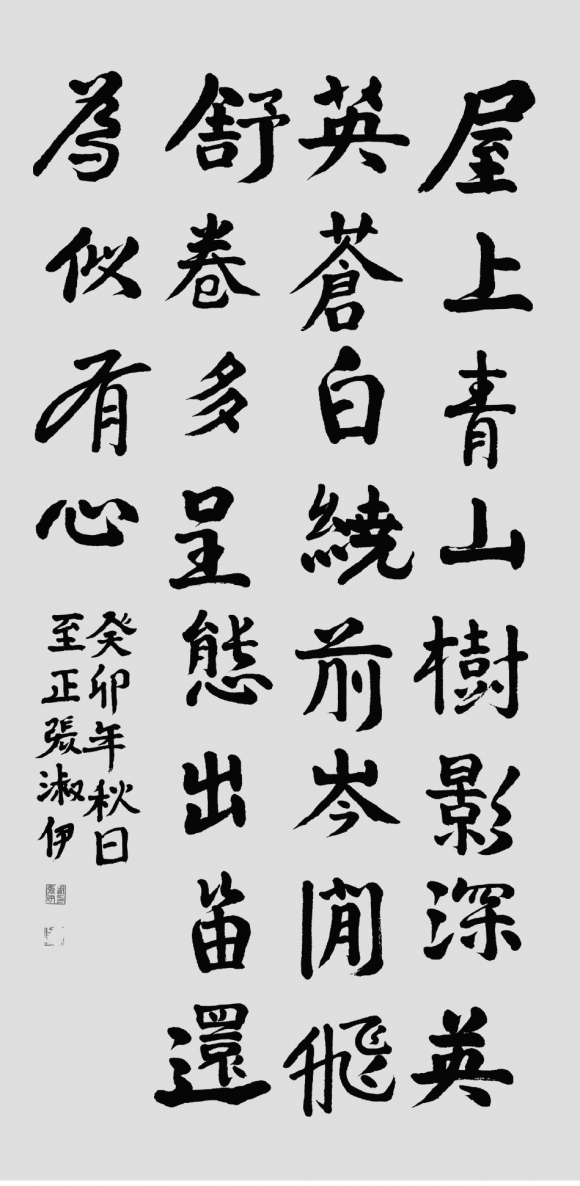 屋上青山樹影深英
英蒼白繞前岑閒飛
舒卷多呈態出笛還
為似有心
癸卯年秋日
至正張淑伊